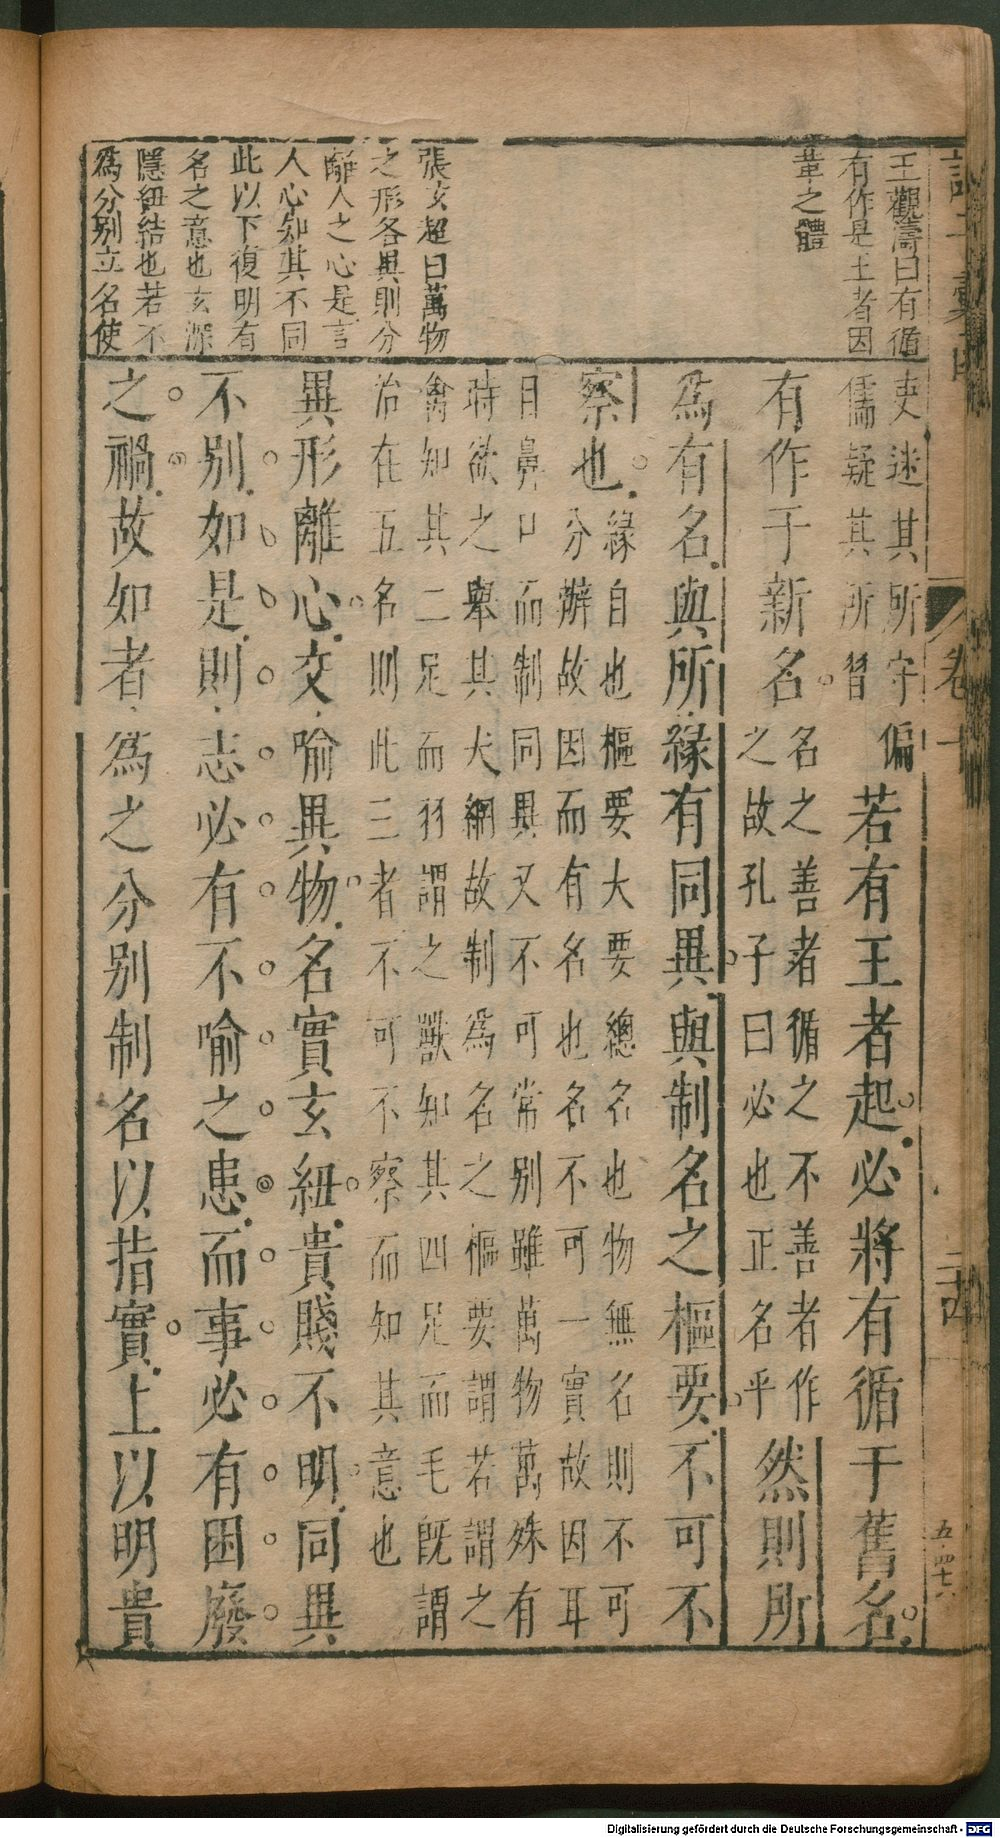 王觀濤曰有循
有作是王者因
革之體
張玄超曰萬物
之形各異則分
離人之心是言
人心知其不同
此以下復明有
名之意也玄深
隱紐結也若不
為分别立名使
吏迷其所守偏
儒疑其所習
若有王者起必將有循于舊名
有作于新名
名之善者循之不善者作
之故孔子曰必也正名乎
然則所
為有名與所緣有同異與制名之樞要不可不
察也
緣自也樞要大要總名也物無名則不可
分辦故因而有名也名不可一實故因耳
目鼻口而制同異又不可常别雖萬物萬殊有
時欲之舉其大綱故制為名之樞要謂若謂之
禽知其二足而羽謂之獸知其四足而毛既謂
治在五名則此三者不可不察而知其意也
異形離心交喻異物名實玄紐貴賤不明同異
不别如是則志必有不喻之患而事必有困廢
之禍故如者為之分别制名以指實上以明貴
卷十
二十四
五·四十六
Digitalisierung gefördert durch die Deutsche Forschungsgemeinschaft - DFG